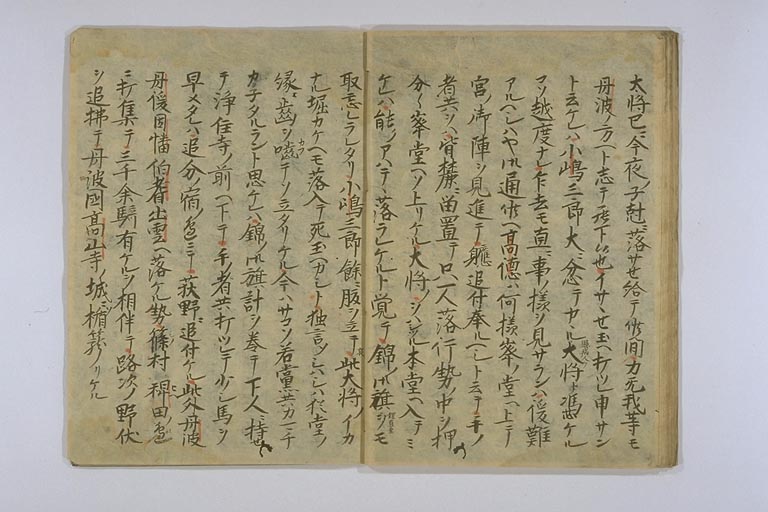 太将已ニ今夜ノ子尅ニ落サセ給テ候間力无我等モ
丹波ノ方ヘト志テ罷下候也イサヽセ玉ヘ打ツレ申サン
ト云ケレハ小嶋三郎大ニ忿テカヽル大将ト憑ケル
コソ越度ナレ乍去モ直ニ事様ヲ見サランハ後難
アルヘシハヤ御通候ヘ高徳ハ何様峯ノ堂ヘ上テ
宮ノ御陣ヲ見進テ軈追付奉ルヘシト云テ手ノ
者共ヲハ麓ニ留置テ只一人落行勢ノ中ヲ押
分々峯堂ヘソ上リケル大将ノヲハシツル本堂ヘ入テミ
ケレハ能ノアハテヽ落ラレケルト覚テ錦ノ御旗ヲモ
取忘レラレタリ小嶋三郎餘ニ腹ヲ立テ此大将ノイカ
ナル堀カケヘモ落入テ死玉ヘカシト独言ヲシハシハ猶堂ノ
縁ニ歯ヲ嚙テソ立タリケル今ハサコソ若黨共カ一チ
カ子タルラント思ケレハ錦ノ御旗計ヲ巻テ下人ニ持セ
テ淨住寺ノ前ヘ下テ手者共打ツレテ少シ馬ヲ
早メケレハ追分ノ宿ノ邊ニテ荻野ニ追付ケル此外丹波
丹後因幡伯耆出雲ヘ落ケル勢篠村稗田ノ邊
ニ打集テ三千余騎有ケルヲ相伴テ路次ノ野伏
ヲ追拂テ丹波國高山寺ノ城ニ楯籠リケル